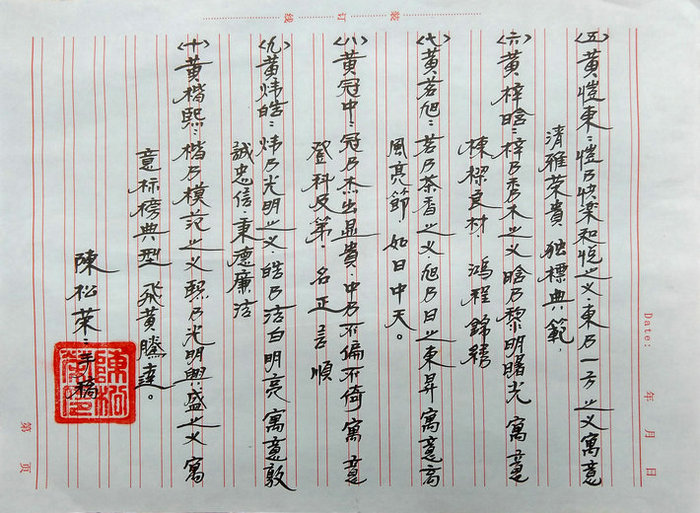 〈五〉黄愷東：愷乃快楽和悦之义．東乃一方之义寓意
清雅荣貴．独標典範．
〈六〉黄梓晗：梓乃秀木之义晗乃黎明曙光寓意
棟樑良材．鴻程錦绣
〈七〉黄茗旭：茗乃茶香之义．旭乃日之東昇寓意高
風亮節如日中天。
〈八〉黄冠中：冠乃杰出显貴．中乃不偏不倚寓意
登科及第．名正言順
〈九〉黄炜皓：炜乃光明之义．皓乃洁白明亮寓意敦
誠忠信．秉德廉洁
〈十〉黄楷熙：楷乃模范之义熙乃光明興盛之义寓
意标榜典型飛黄騰達。
陳松葉：手稿
装訂线
Date:
年月日
第页